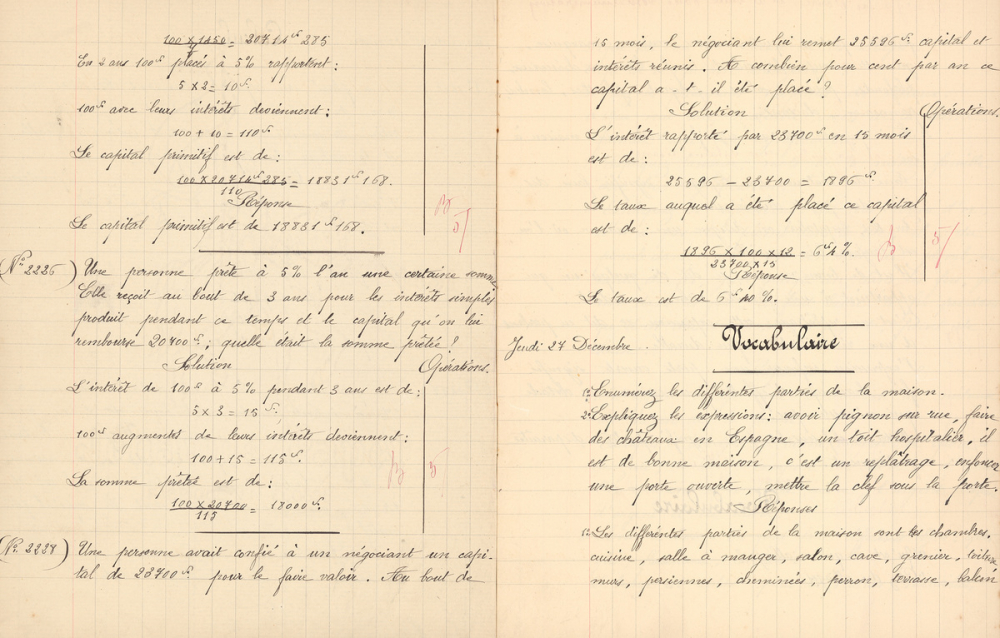 100 × 1450 = 20714f 285
7
En 2 ans 100f placés à 5% rapportent :
5 × 2 = 10f.
100f avec leurs intérêts deviennent :
100 + 10 = 110f
Le capital primitif est de :
100 × 20714f 285 = 18831f 168.
110
Réponse
Le capital primitif est de 18831f 168.
5/
(No 2226) Une personne prête à 5% l'an une certaine somme.
Elle reçoit au bout de 3 ans pour les intérêts simples
produit pendant ce temps et le capital qu'on lui
rembourse 20700f ; quelle était la somme prêtée ?
Solution Opérations.
L'intérêt de 100f à 5% pendant 3 ans est de :
5 × 3 = 15f.
100f augmentés de leurs intérêts deviennent :
100 + 15 = 115f.
La somme prêtée est de :
5
100 × 20700 = 18000f.
115
(No 2227) Une personne avait confié à un négociant un capi-
tal de 23700f pour le faire valoir. Au bout de
15 mois, le négociant lui remet 25596f capital et
intérêts réunis. A combien pour cent par an ce
capital a-t-il été placé ?
Solution Opérations.
L'intérêt rapporté par 23700f en 15 mois
est de :
25596 – 23700 = 1896f.
Le taux auquel a été placé ce capital
est de :
1896 × 100 × 12 = 6f 4%.
23700 × 15
5/
Réponse
Le taux est de 6f 40%.
Jeudi 27 Décembre. Vocabulaire
1o Enumérez les différentes parties de la maison.
2o Expliquez les expressions : avoir pignon sur rue, faire
des châteaux en Espagne, un toit hospitalier, il
est de bonne maison, c'est un replâtrage, enfoncer
une porte ouverte, mettre la clef sous la porte.
Réponses
1o Les différentes parties de la maison sont les chambres,
cuisine, salle à manger, salon, cave, grenier, toiture
murs, persiennes, cheminées, perron, terrasse, balcon